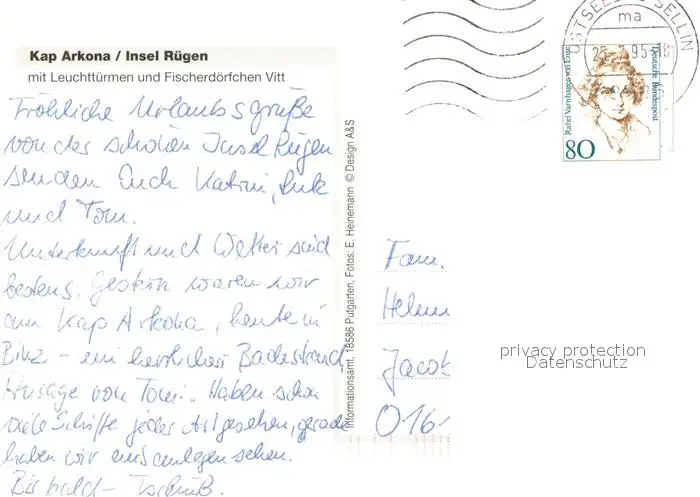 Kap Arkona / Insel Rügen
mit Leuchttürmen und Fischerdörfchen Vitt
Fröhliche Urlaubsgrüße
von der schönen Insel Rügen
senden Euch Katrin,
und Tom.
Unterkunft und Wetter sind
bestens. Gestern waren wir
am Kap Arkona, heute in
Binz - ein herrlicher Badestrand.
Aussage von Tom. Haben schon
viele Schiffe jeder Art gesehen, gerade
haben wir eins anlegen sehen.
Bis bald - Tschüß.
Informationsamt, 18586 Putgarten, Fotos: E. Heinemann © Design A&S
OSTSEEBAD SELLIN
ma
95-18
Rahel Varnhagen von Ense
Deutsche Bundespost
80
Fam.
Helm
Jacob
016
privacy protection
Datenschutz